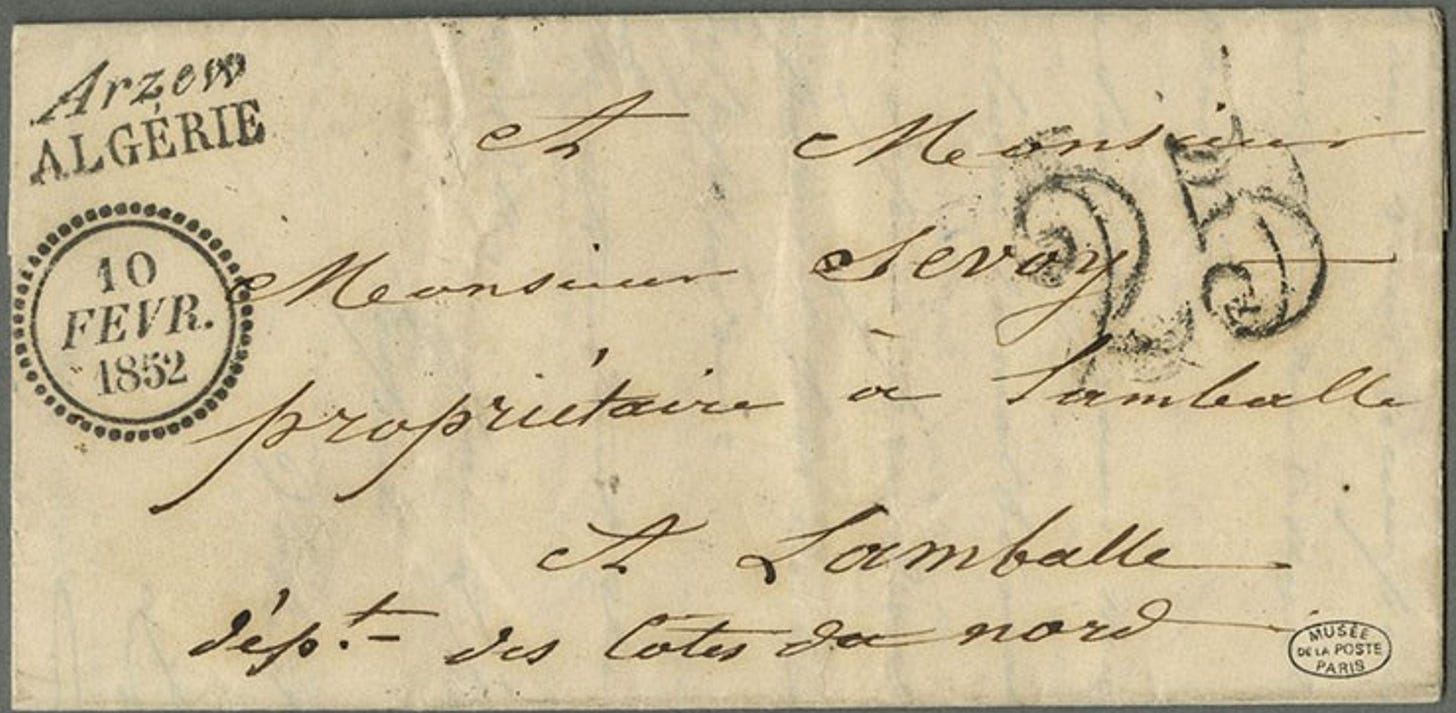 Arzew
ALGÉRIE
10
FEVR.
1852
25
A Monsieur
Monsieur Sevoy
propriétaire à Lamballe
A Lamballe
dépt. des Côtes du nord
MUSÉE
DE LA POSTE
PARIS